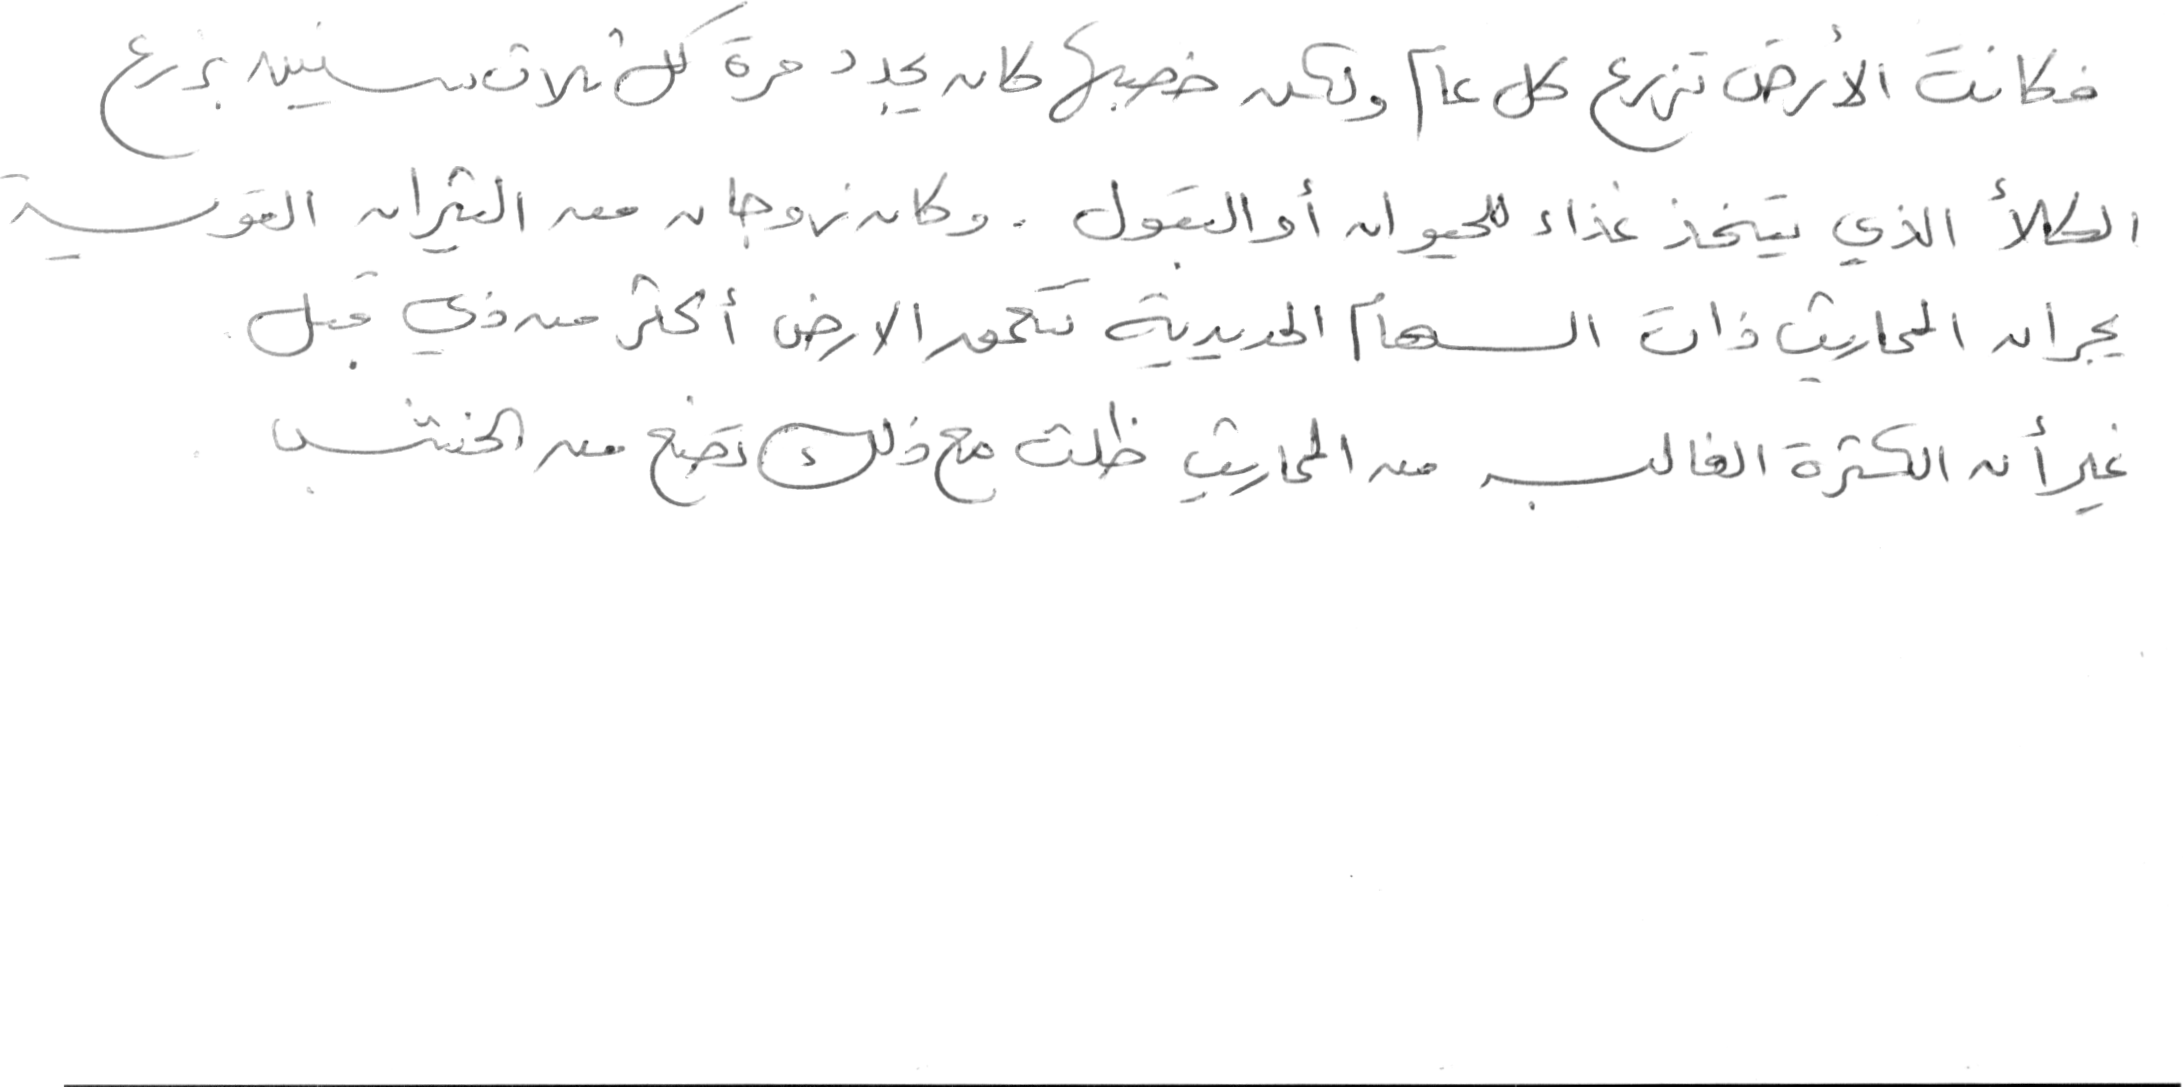 فكانت الأرض تزرع كل عام ولكن خصبها كان يجدد مرة كل ثلاث سنين بزرع
الكلأ الذي يتخذ غذاء للحيوان أو البقول . وكان زوجان من الثيران القوية
يجران المحاريث ذات السهام الحديدية تتعمق الارض أكثر من ذي قبل .
غير أن الكثرة الغالب من المحاريث ظلت مع ذلك تصنع من الخشب .